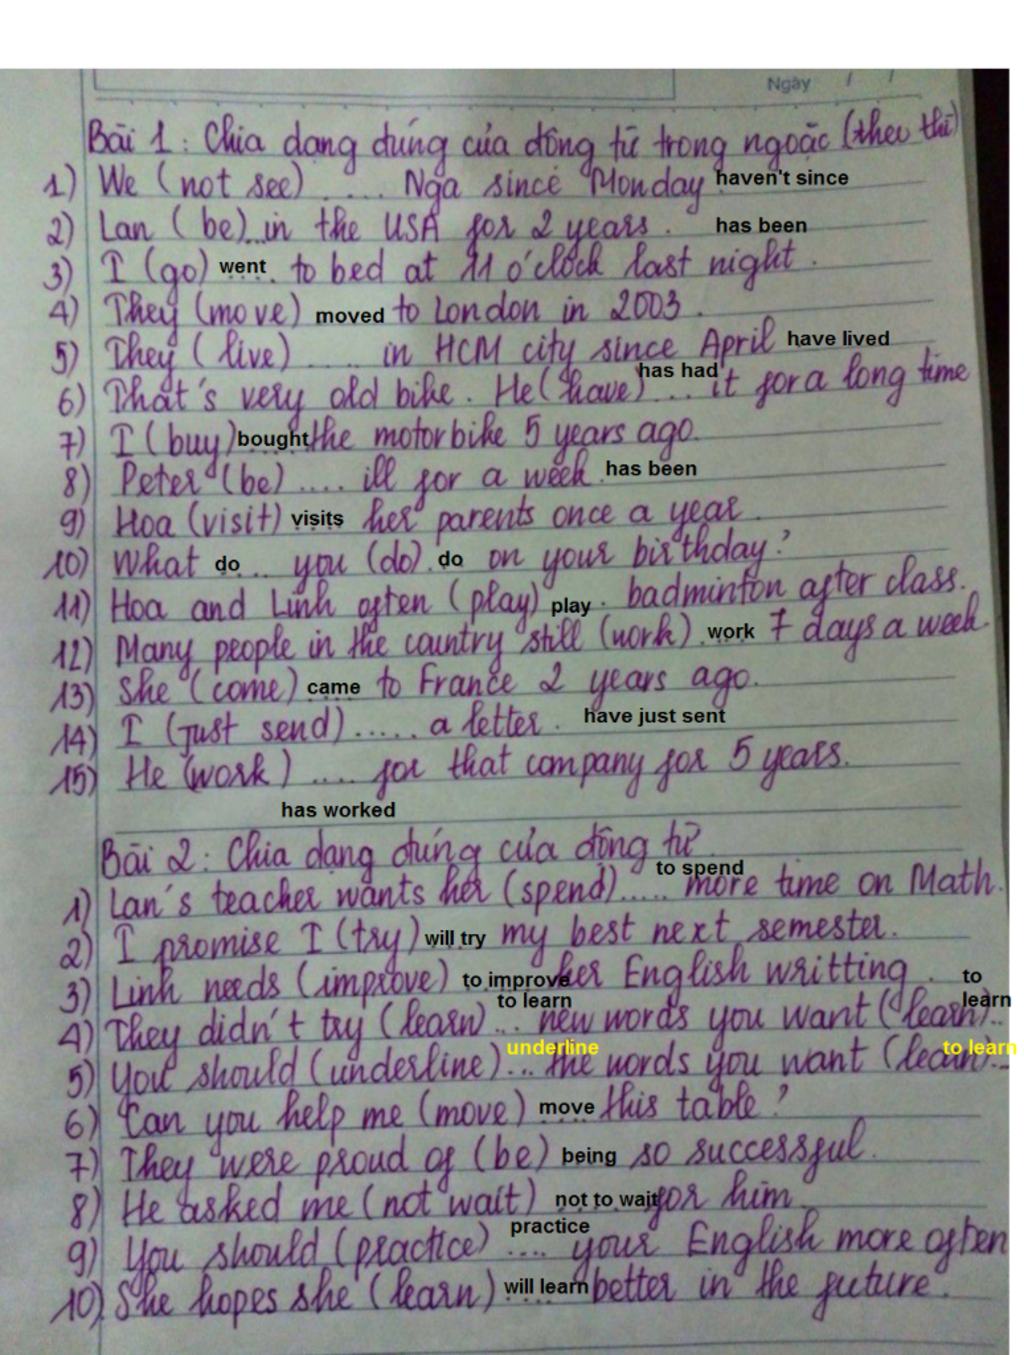 Ngày / /
Bài 1: Chia dạng đúng của động từ trong ngoặc (theo thì)
1) We (not see) ..... Nga since Monday haven't since
2) Lan (be)...in the USA for 2 years. has been
3) I (go) went to bed at 11 o'clock last night.
4) They (move) moved to London in 2003.
5) They (live) ..... in HCM city since April have lived
6) That's very old bike. He (have) has had ... it for a long time
7) I (buy) bought the motorbike 5 years ago.
8) Peter (be) .... ill for a week. has been
9) Hoa (visit) visits her parents once a year
10) What do ... you (do). do on your birthday?
11) Hoa and Linh often (play) play . badminton after class.
12) Many people in the country still (work) work 7 days a week.
13) She (come) came to France 2 years ago.
14) I (just send) ..... a letter. have just sent
15) He (work) .... for that company for 5 years.
has worked
Bài 2: Chia dạng đúng của động từ
1) Lan's teacher wants her (spend) to spend ..... more time on Math.
2) I promise I (try) will try my best next semester.
3) Linh needs (improve) to improve her English writting .
4) They didn't try (learn) to learn ... new words you want (learn).. to learn
5) You should (underline) underline ... the words you want (learn)... to learn
6) Can you help me (move) move this table?
7) They were proud of (be) being so successful.
8) He asked me (not wait) not to wait for him.
9) You should (practice) practice .... your English more often
10) She hopes she (learn) will learn better in the future.